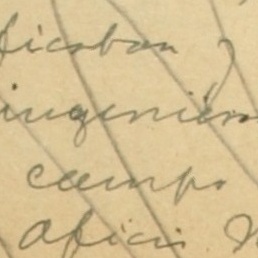 ficaban y
ingenier
campo
Oficio